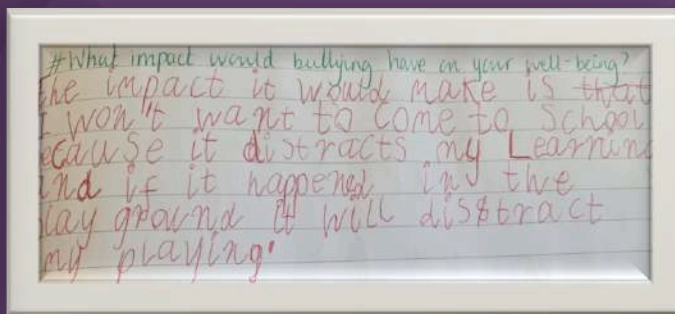 #What impact would bullying have on your well-being?
he impact it would make is that
I won't want to come to school
ecause it distracts my Learnin
and if it happened in the
lay ground it will disstract
my playing.